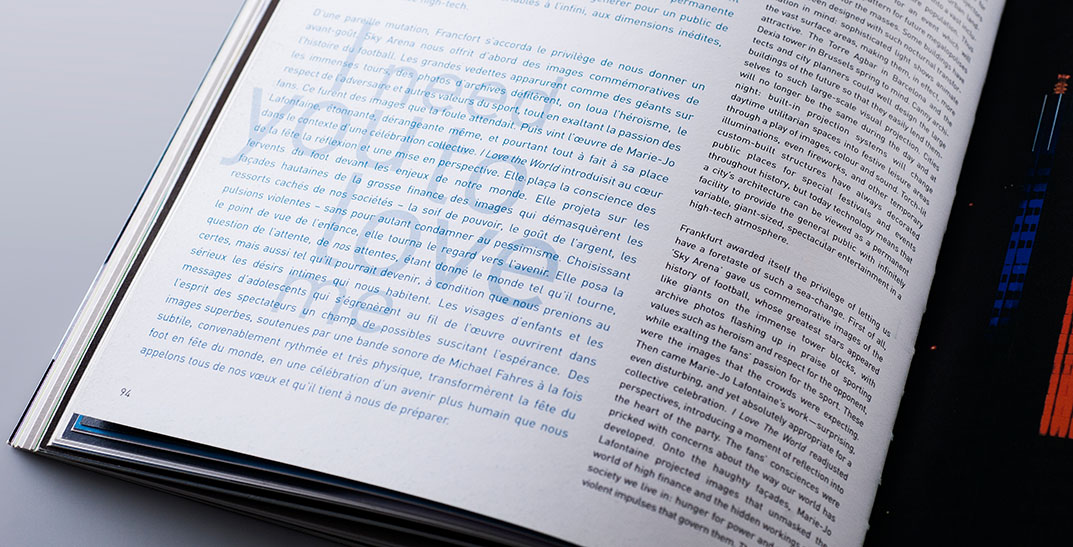 permanente
générer pour un public de
à l'infini, aux dimensions inédites,
high-tech.
D'une pareille mutation, Francfort s'accorda le privilège de nous donner un
avant-goût. Sky Arena nous offrit d'abord des images commémoratives de
l'histoire du football. Les grandes vedettes apparurent comme des géants sur
les immenses tours, des photos d'archives défilèrent, on loua l'héroïsme, le
respect de l'adversaire et autres valeurs du sport, tout en exaltant la passion des
fans. Ce furent des images que la foule attendait. Puis vint l'œuvre de Marie-Jo
Lafontaine, étonnante, dérangeante même, et pourtant tout à fait à sa place
dans le contexte d'une célébration collective. I Love the World introduisit au cœur
de la fête la réflexion et une mise en perspective. Elle plaça la conscience des
fervents du foot devant les enjeux de notre monde. Elle projeta sur les
façades hautaines de la grosse finance des images qui démasquèrent les
ressorts cachés de nos sociétés – la soif de pouvoir, le goût de l'argent, les
pulsions violentes – sans pour autant condamner au pessimisme. Choisissant
le point de vue de l'enfance, elle tourna le regard vers l'avenir. Elle posa la
question de l'attente, de nos attentes, étant donné le monde tel qu'il tourne,
certes, mais aussi tel qu'il pourrait devenir, à condition que nous prenions au
sérieux les désirs intimes qui nous habitent. Les visages d'enfants et les
messages d'adolescents qui s'égrenèrent au fil de l'œuvre ouvrirent dans
l'esprit des spectateurs un champ de possibles suscitant l'espérance. Des
images superbes, soutenues par une bande sonore de Michael Fahres à la fois
subtile, convenablement rythmée et très physique, transformèrent la fête du
foot en fête du monde, en une célébration d'un avenir plus humain que nous
appelons tous de nos vœux et qu'il tient à nous de préparer.
I need
you to
love
me
94
been designed with such nocturnal
in mind: sophisticated light shows animate
the vast surface areas, making them, in effect, more
attractive. The Torre Agbar in Barcelona and the
Dexia tower in Brussels spring to mind. Can archi-
tects and city planners could well design the large
buildings of the future so that they easily lend them-
selves to such large-scale visual projection. Cities
will no longer be the same during the day and at
night: built-in projection systems will change
daytime utilitarian spaces into festive leisure areas
through a play of images, colour and sound. Torch-lit
illuminations, even fireworks, and other temporary
custom-built structures have always decorated
public places for special festivals and events
throughout history, but today technology means that
a city's architecture can be viewed as a permanent
facility to provide the general public with infinitely
variable, giant-sized, spectacular entertainment in a
high-tech atmosphere.
Frankfurt awarded itself the privilege of letting us
have a foretaste of such a sea-change. First of all,
'Sky Arena' gave us commemorative images of the
history of football, whose greatest stars appeared
like giants on the immense tower blocks, with
archive photos flashing up in praise of sporting
values such as heroism and respect for the opponent,
while exalting the fans' passion for the sport. These
were the images that the crowds were expecting.
Then came Marie-Jo Lafontaine's work—surprising,
even disturbing, and yet absolutely appropriate for a
collective celebration. I Love The World readjusted
perspectives, introducing a moment of reflection into
the heart of the party. The fans' consciences were
pricked with concerns about the way our world has
developed. Onto the haughty façades, Marie-Jo
Lafontaine projected images that unmasked the
world of high finance and the hidden workings
society we live in: hunger for power and
violent impulses that govern them.